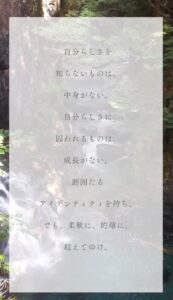 自分らしさを
知らないものは、
中身がない。
自分らしさに
囚われるものは、
成長がない。
断固たる
アイデンティティを持ち、
でも、柔軟に、的確に、
超えてゆけ。